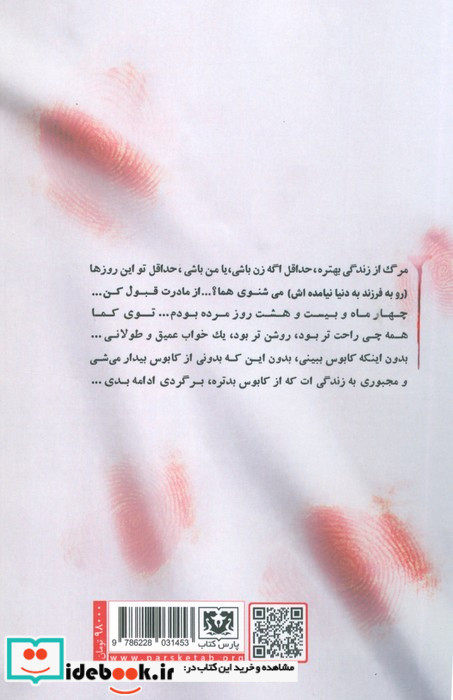 مرگ از زندگی بهتره، حداقل اگه زن باشی، یا من باشی، حداقل تو این روزها
(رو به فرزند به دنیا نیامده اش) می شنوی هما؟... از مادرت قبول کن...
چهار ماه و بیست و هشت روز مرده بودم... توی کما
همه چی راحت تر بود، روشن تر بود، یك خواب عمیق و طولانی...
بدون اینکه کابوس ببینی، بدون این که بدونی از کابوس بیدار می‌شی
و مجبوری به زندگی ات که از کابوس بدتره، برگردی ادامه بدی...
۹۸۰۰۰ تومان
9 786228 031453
پارس کتاب
www.parsketab.org
مشاهده و خرید این کتاب در:
idebook.ir